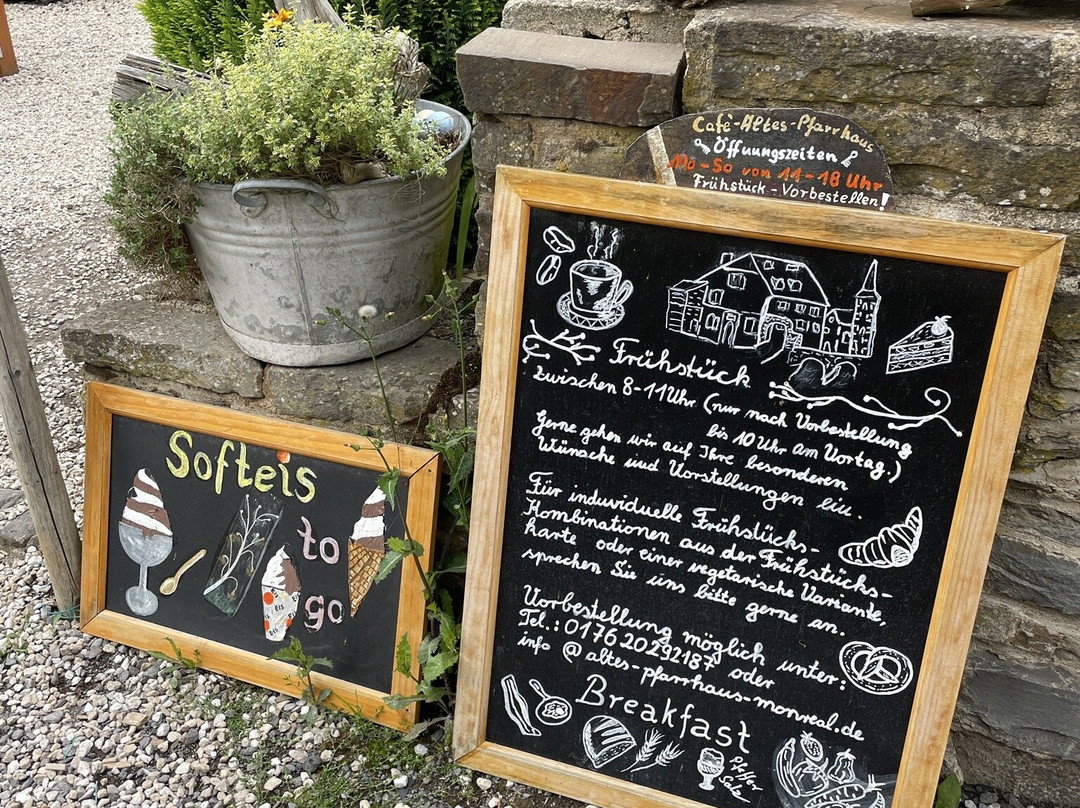 Café-Altes-Pfarrhaus
Öffnungszeiten
Mo-So von 11-18 Uhr
Frühstück-Vorbestellen!
Frühstück
Zwischen 8-11Uhr (nur nach Vorbestellung
bis 10 Uhr am Vortag.)
Gerne gehen wir auf Ihre besonderen
Wünsche und Vorstellungen ein.
Für induviduelle Frühstücks-
Kombinationen aus der Frühstücks-
karte oder einer vegetarische Variante,
sprechen Sie uns bitte gerne an.
Vorbestellung möglich unter:
Tel.: 017620292187 oder
info @ altes-pfarrhaus-monreal.de
Breakfast
Pfeffer
Salz
Softeis
to
go
Eis
Eis